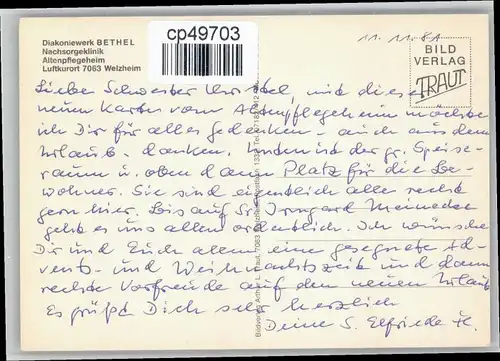 Diakoniewerk BETHEL
Nachsorgeklinik
Altenpflegeheim
Luftkurort 7063 Welzheim
cp49703
11. 11. 81
BILD
VERLAG
TRAUT
Liebe Schwester Christel, mit dieser
neuen Karte vom Altenpflegeheim möchte
ich Dir für alles Gedenken - auch aus dem
Urlaub - danken. Unten ist der gr. Speise-
raum u. oben dann Platz für die Be-
wohner. Sie sind eigentlich alle recht
gern hier. Bis auf Sr. Irmgard Meinecke
geht es uns allen ordentlich. Ich wünsche
Dir und Euch allen eine gesegnete Ad-
vents- und Weihnachtszeit und dann
rechte Vorfreude auf den neuen Urlaub
Es grüßt Dich sehr herzlich
Deine S. Elfriede H.
Bildverlag Arthur Traut, 7063 Welzheim